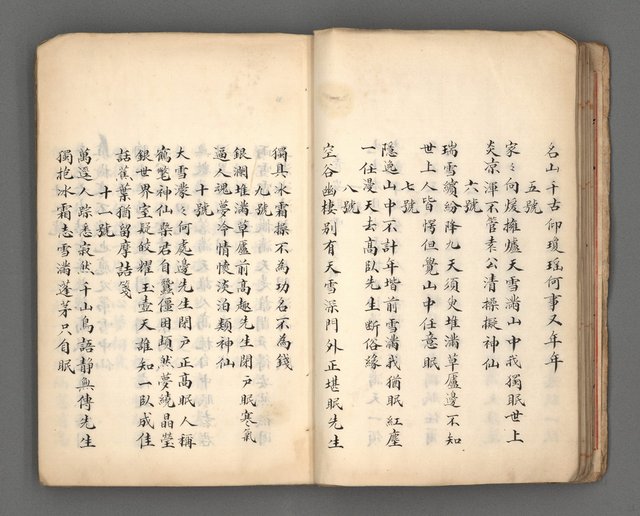 名山千古仰瓊瑤何事又年年
五號
家々向煖擁爐天雪滿山中我獨眠世上
炎凉渾不管素公清操擬神仙
六號
瑞雪繽紛降九天須臾堆滿草廬邊不知
世上人皆愕但覺山中任意眠
七號
隱逸山中不計年堦前雪滿我猶眠紅塵
一任漫天去高臥先生断俗緣
八號
空谷幽棲別有天雪深門外正堪眠先生
獨具冰霜操不為功名不為錢
九號
銀瀾堆滿草廬前高趣先生閉戶眠寒氣
逼人魂夢冷情懷淡泊類神仙
十號
大雪濛々何處邊先生閉戶正高眠人稱
鶴氅神仙槩君自鷺僵困頗然夢繞晶瑩
銀世界室凝皎耀玉壺天誰知一臥成佳
話萑葉猶留摩詰箋
十一號
萬逕人踪悉寂然千山鳥語靜無傳先生
獨抱冰霜志雪滿蓬茅只自眠